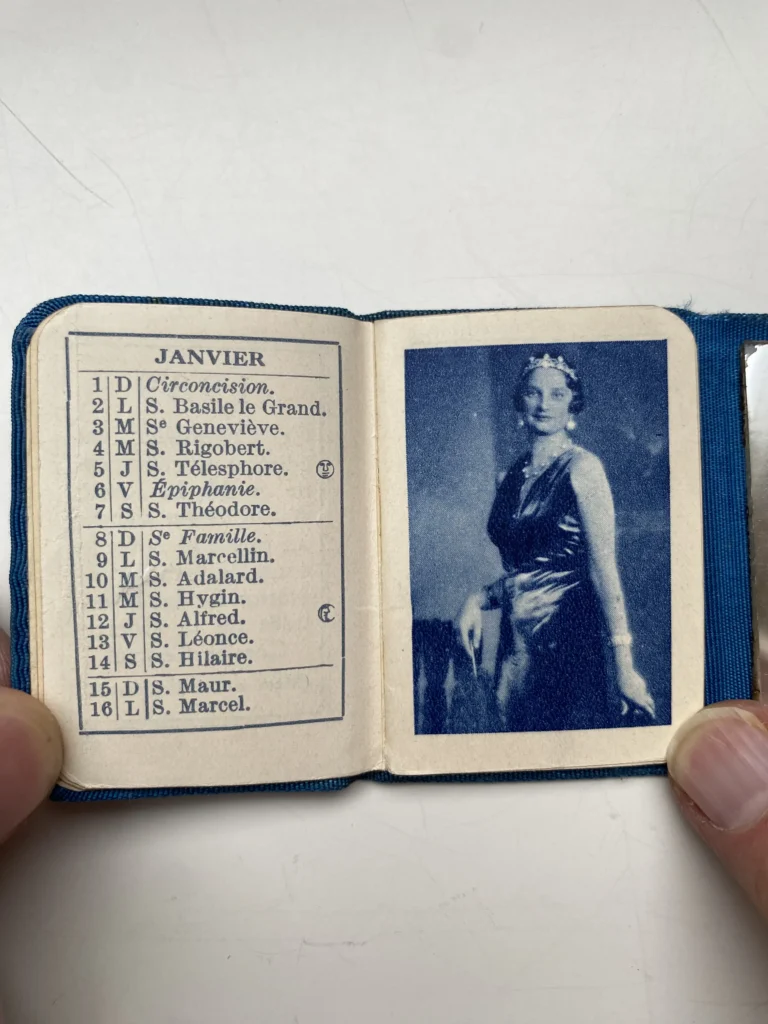 JANVIER
1 D Circoncision.
2 L S. Basile le Grand.
3 M Se Geneviève.
4 M S. Rigobert.
5 J S. Télesphore.
6 V Épiphanie.
7 S S. Théodore.
8 D Se Famille.
9 L S. Marcellin.
10 M S. Adalard.
11 M S. Hygin.
12 J S. Alfred.
13 V S. Léonce.
14 S S. Hilaire.
15 D S. Maur.
16 L S. Marcel.